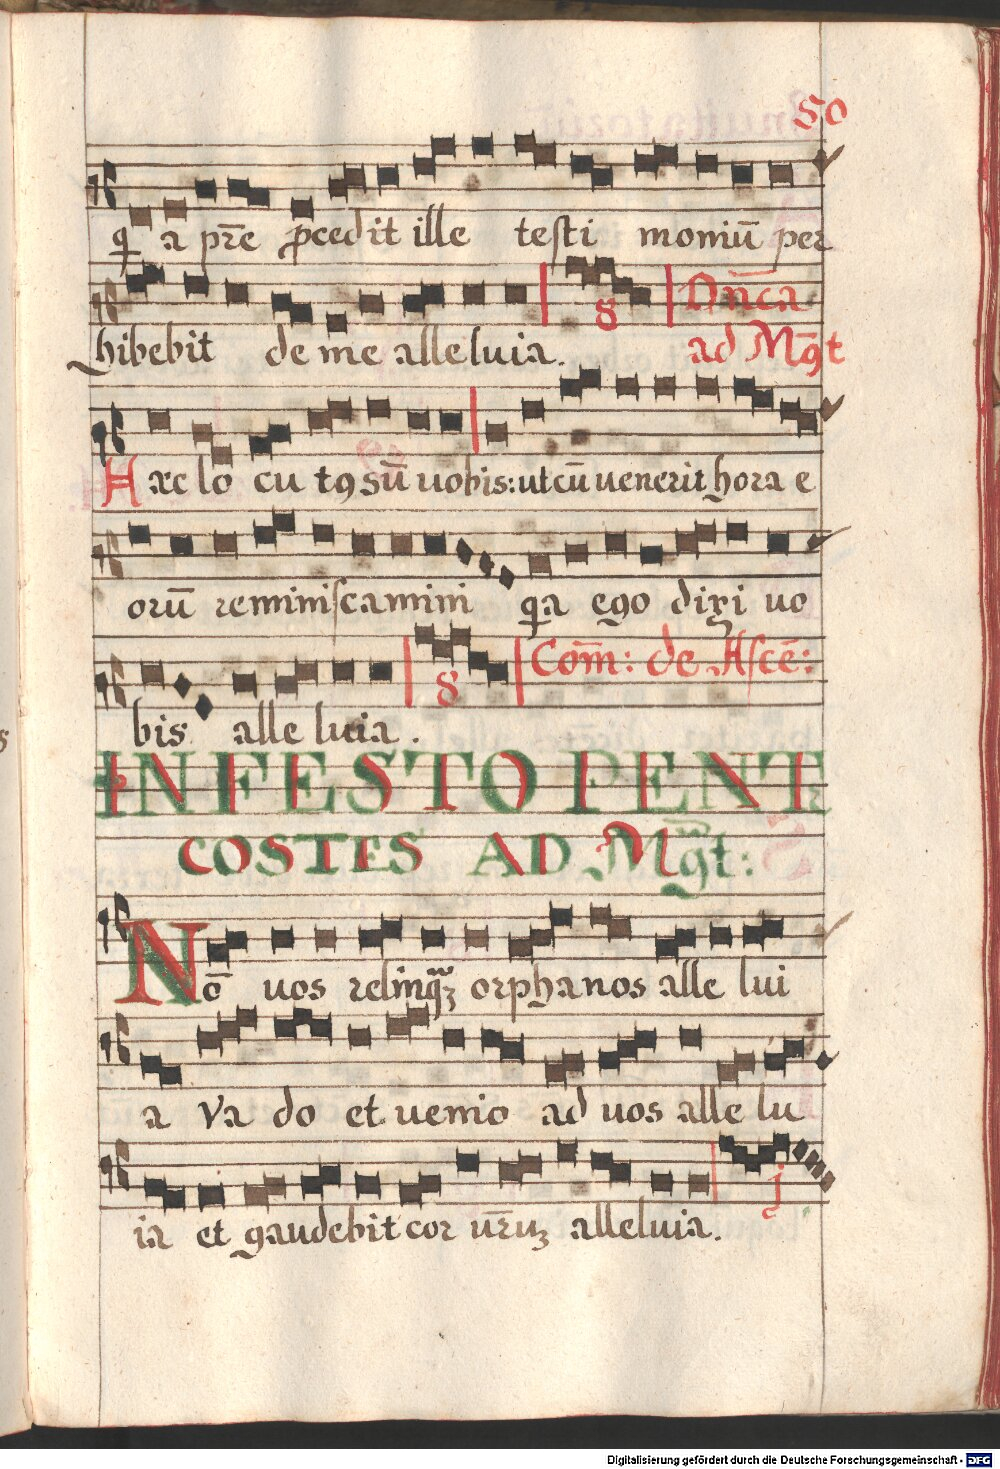 50
q̃ a pr̄e ꝓcedit ille testi moniū per
hibebit de me alleluia. 8 Dn̄ca
ad Mg̃t
Hæc lo cu tꝯ sū uobis: ut cū uenerit hora e
orū reminiscamini q̃a ego dixi uo
bis alle luia. 8 Com̄: de Ascē:
IN FESTO PENT
COSTES AD Mg̃t:
Nō uos relinquã orphanos alle lui
a Va do et uenio ad uos alle lu
ia et gaudebit cor ur̄uꝫ alleluia. j
Digitalisierung gefördert durch die Deutsche Forschungsgemeinschaft - DFG